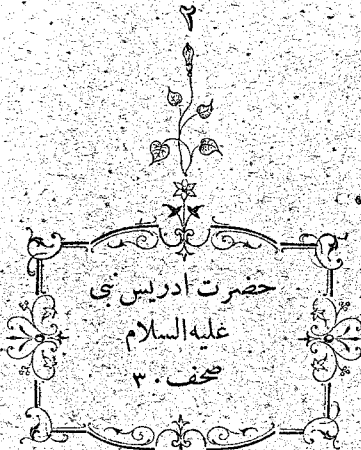 ٢
حضرت ادریس نبی
علیه السلام
صحف ٣٠